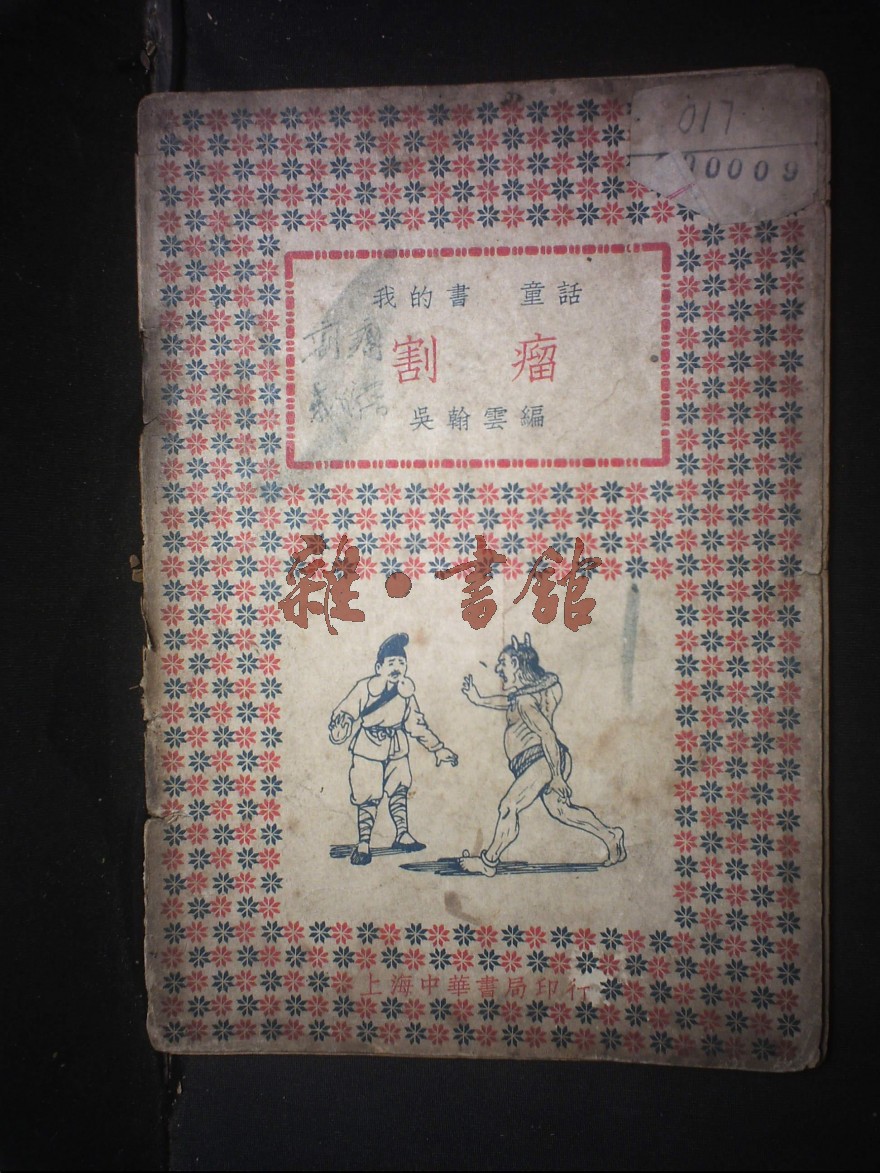 017
00009
我的書 童話
割瘤
吳翰雲編
雜·書館
上海中華書局印行